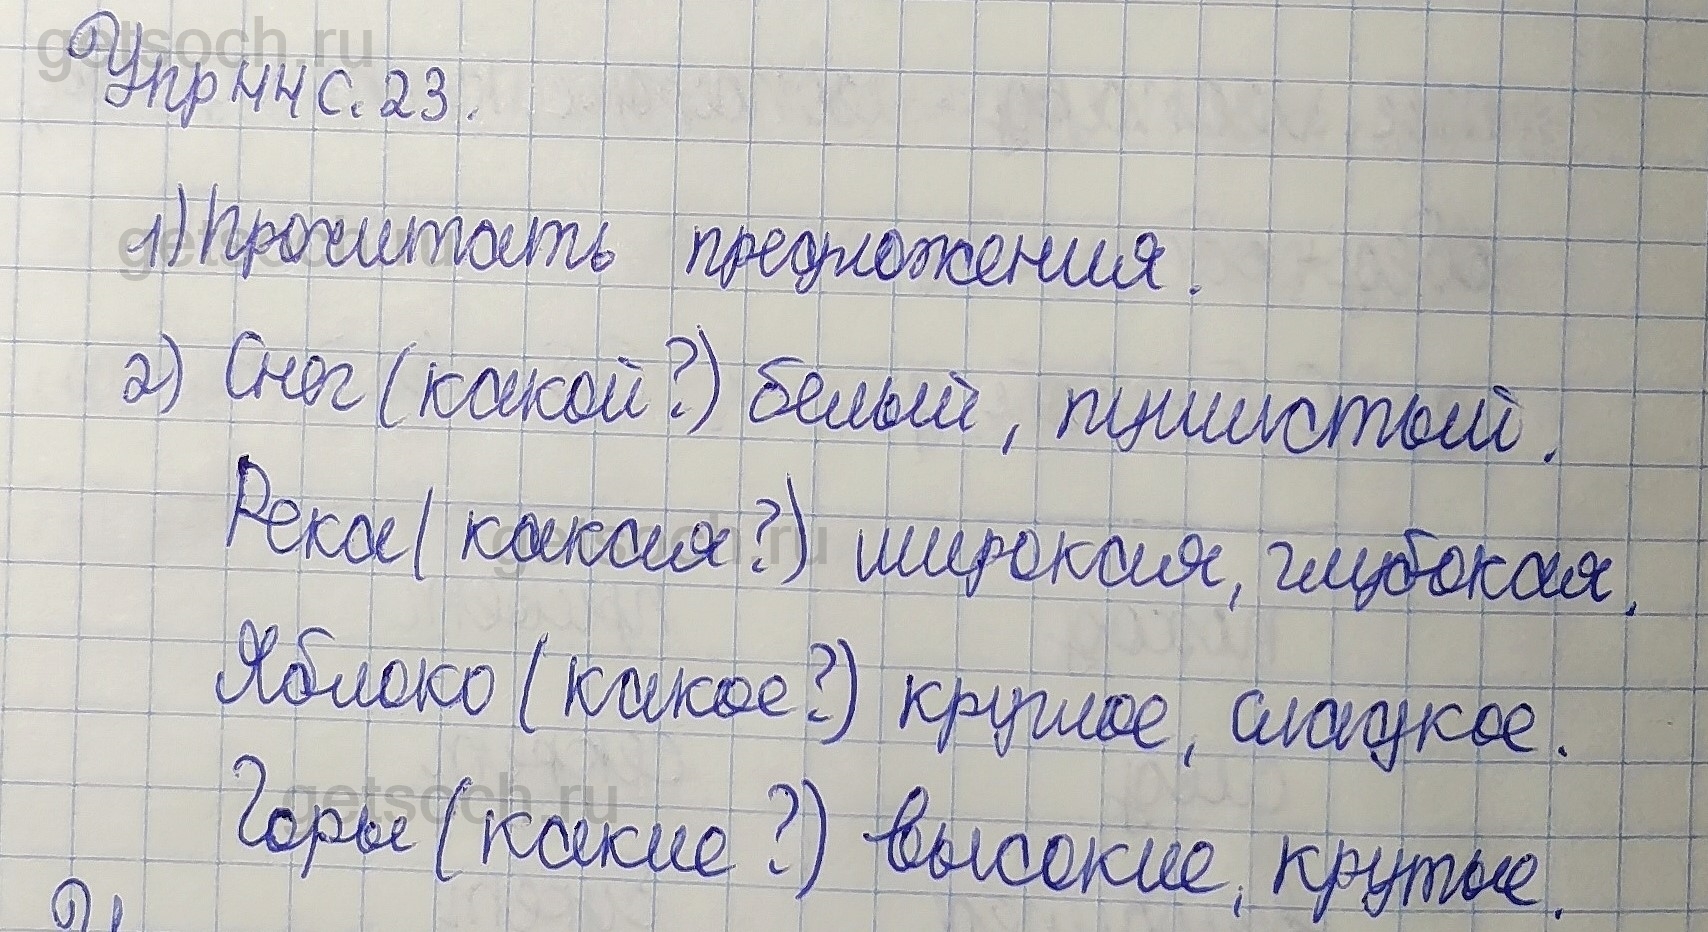 getsoch.ru
Упр 44 с. 23.
1) Прочитать предложения.
getsoch.ru
2) Снег (какой?) белый, пушистый.
Река (какая?) широкая, глубокая.
getsoch.ru
Яблоко (какое?) круглое, сладкое.
Горы (какие?) высокие, крутые.
getsoch.ru